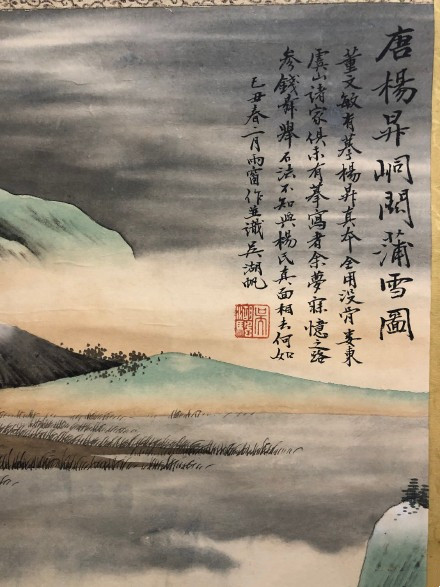 唐楊昇峒關蒲雪圖
董文敏有摹楊昇真本全用没骨婁東
虞山諸家俱未有摹寫者余夢寐憶之略
參錢舜舉石法不知與楊氏真面相去何如
己丑春二月雨窗作並識吳湖帆